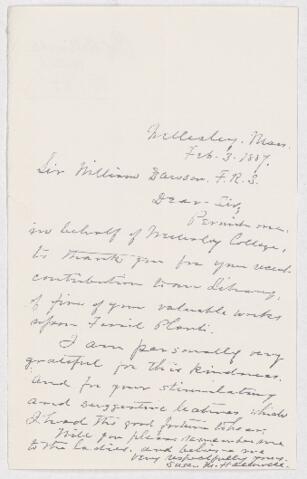 Wellesley, Mass.
Feb. 3. 1887.
Sir William Dawson, F.R.S.
Dear Sir,
Permit me,
in behalf of Wellesley College,
to thank you for your recent
contribution to our Library,
of five of your valuable works
upon Fossil Plants.
I am personally very
grateful for this kindness
and for your stimulating
and suggestive lectures which
I had the good fortune to hear.
Will you please remember me
to the ladies, and believe me
very respectfully yours,
Susan M. Hallowell.